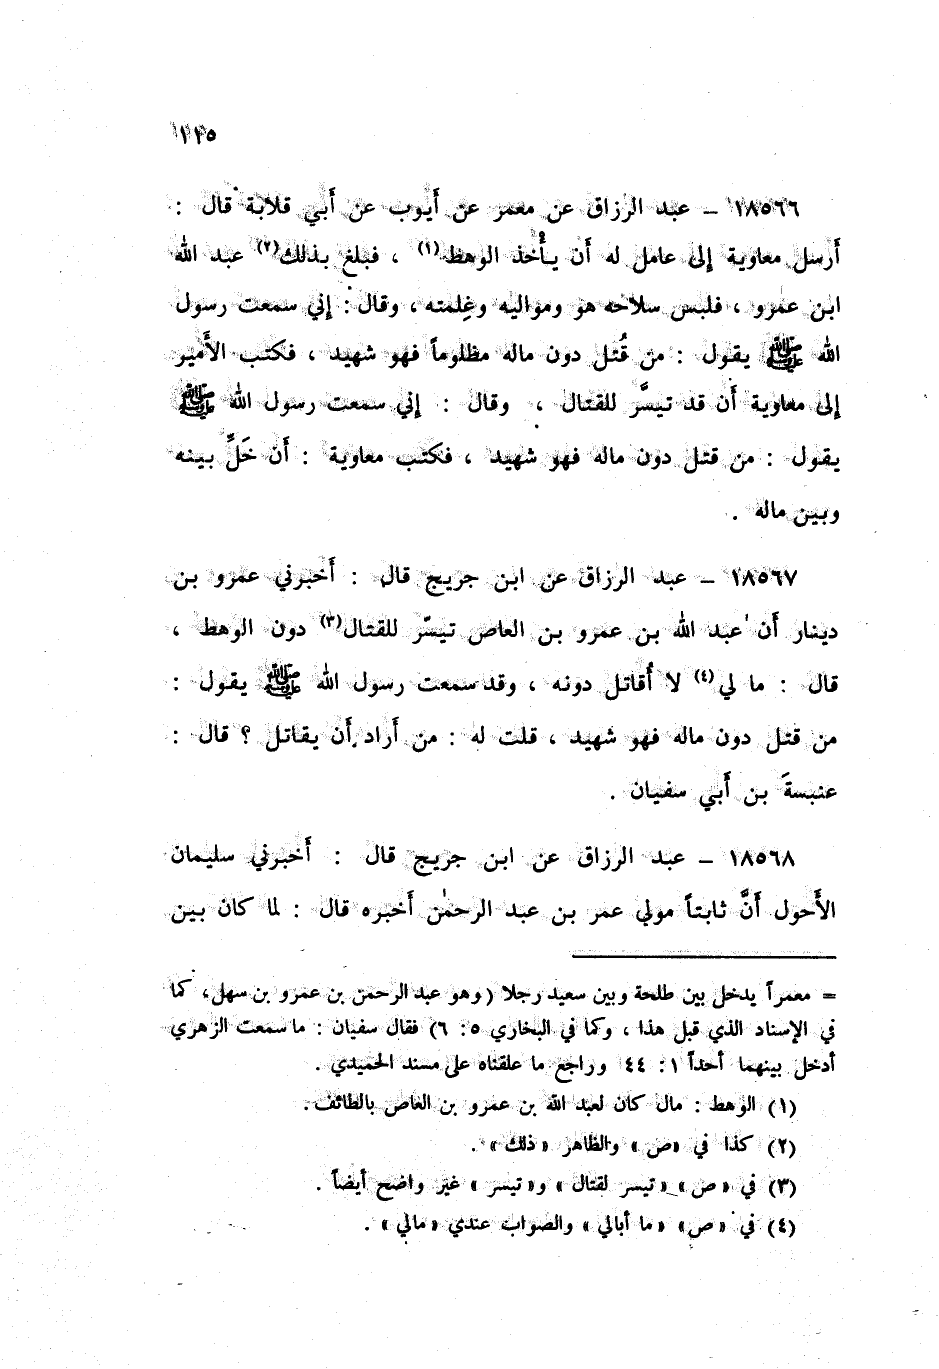 ١١٥
١٨٥٦٦ – عبد الرزاق عن معمر عن أيوب عن أبي قلابة قال :
أرسل معاوية إلى عامل له أن يأخذ الوهط(١) ، فبلغ بذلك(٢) عبد الله
ابن عمرو ، فلبس سلاحه هو ومواليه وغِلمته ، وقال : إني سمعت رسول
الله ﷺ يقول : من قُتل دون ماله مظلوماً فهو شهيد ، فكتب الأَمير
إلى معاوية أن قد تيسَّر للقتال ، وقال : إني سمعت رسول الله ﷺ
يقول : من قتل دون ماله فهو شهيد ، فكتب معاوية : أن خَلِّ بينه
وبين ماله .
١٨٥٦٧ – عبد الرزاق عن ابن جريج قال : أخبرني عمرو بن
دينار أن عبد الله بن عمرو بن العاص تيسّر للقتال(٣) دون الوهط ،
قال : ما لي(٤) لا أُقاتل دونه ، وقد سمعت رسول الله ﷺ يقول :
من قتل دون ماله فهو شهيد ، قلت له : من أراد أن يقاتل ؟ قال :
عنبسةَ بن أبي سفيان .
١٨٥٦٨ – عبد الرزاق عن ابن جريج قال : أخبرني سليمان
الأَحول أنَّ ثابتاً مولي عمر بن عبد الرحمٰن أخبره قال : لما كان بين
= معمراً يدخل بين طلحة وبين سعيد رجلا (وهو عبد الرحمن بن عمرو بن سهل، كما
في الإسناد الذي قبل هذا ، وكما في البخاري ٥ : ٦) فقال سفيان : ما سمعت الزهري
أدخل بينهما أحداً ١ : ٤٤ وراجع ما علقناه على مسند الحميدي .
(١) الوهط : مال كان لعبد الله بن عمرو بن العاص بالطائف .
(٢) كذا في «ص» والظاهر «ذلك» .
(٣) في «ص» «تيسر لقتال» و«تيسر» غير واضح أيضاً .
(٤) في «ص» «ما أبالي» والصواب عندي «مالي» .